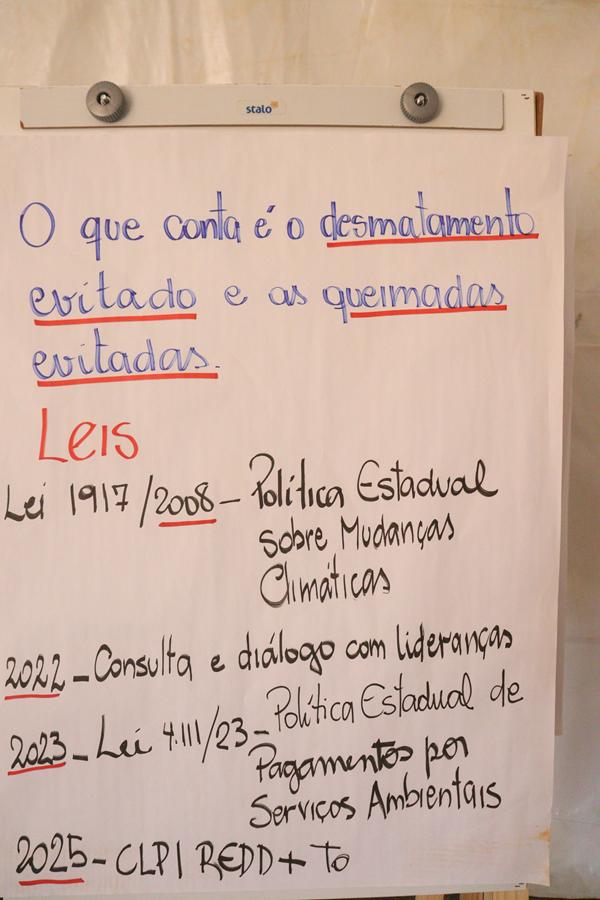 stalo
O que conta é o desmatamento
evitado e as queimadas
evitadas.
Leis
Lei 1917/2008 - Política Estadual
sobre Mudanças
Climáticas
2022 - Consulta e diálogo com lideranças
2023 - Lei 4.111/23 - Política Estadual de
Pagamentos por
Serviços Ambientais
2025 - CLPI REDD + To